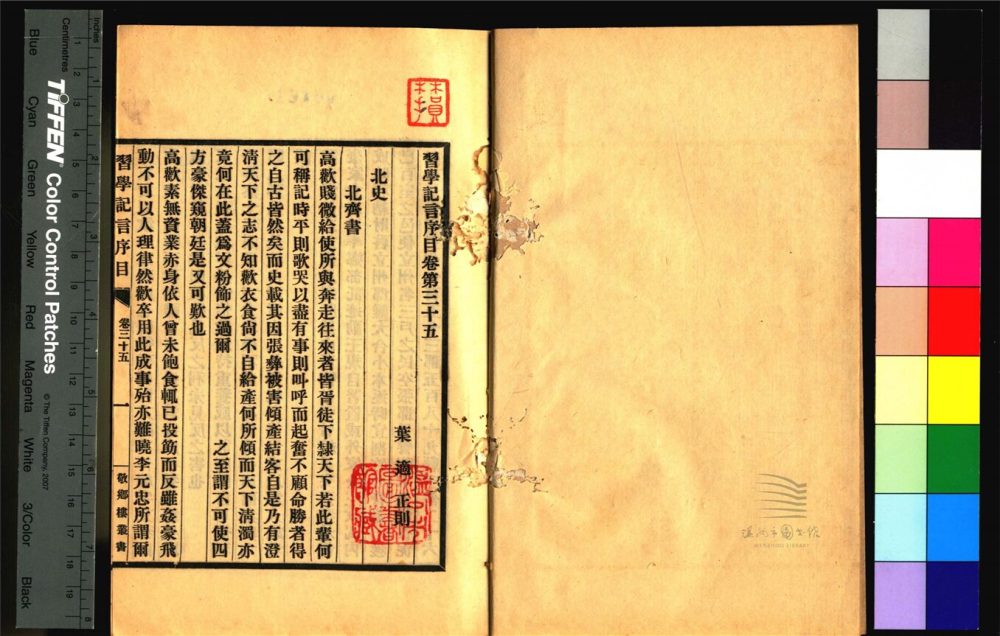 習學記言序目卷第三十五
葉適正則
北史
北齊書
高歡賤微給使所與奔走往來者皆胥徒下隸天下若此輩何
可稱記時平則歌哭以盡有事則叫呼而起奮不顧命勝者得
之自古皆然矣而史載其因張彝被害傾產結客自是乃有澄
淸天下之志不知歡衣食尙不自給產何所傾而天下淸濁亦
竟何在此蓋爲文粉飾之過爾 之至謂不可使四
方豪傑窺朝廷是又可歎也
高歡素無資業赤身依人曾未飽食輒已投筯而反雖姦豪飛
動不可以人理律然歡卒用此成事殆亦難曉李元忠所謂爾
習學記言序目
卷三十五
一
敬鄉樓叢書
Inches
Centimetres
TIFFEN Color Control Patches
© The Tiffen Company, 2007
Blue
Cyan
Green
Yellow
Red
Magenta
White
3/Color
Black
温州市图书馆
WENZHOU LIBRARY